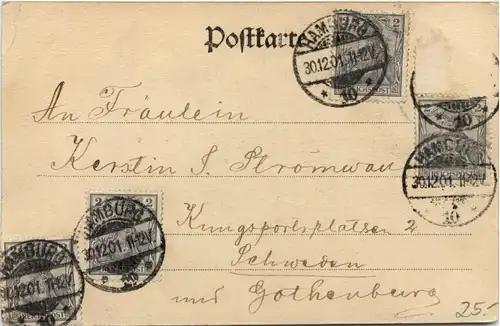 Postkarte
HAMBURG
30.12.01. 11-12V.
* 10 *
2
REICHSPOST
An Fräulein
HAMBURG
30.12.01. 11-12V.
* 10
Kerstin S. Strömwall
2 2
HAMBURG
12.01. 11-12V.
* 10
Kungsportsplatsen 2
HAMBURG
12.01. 11-12V.
* 10
Schweden
und Gothenburg
25.-